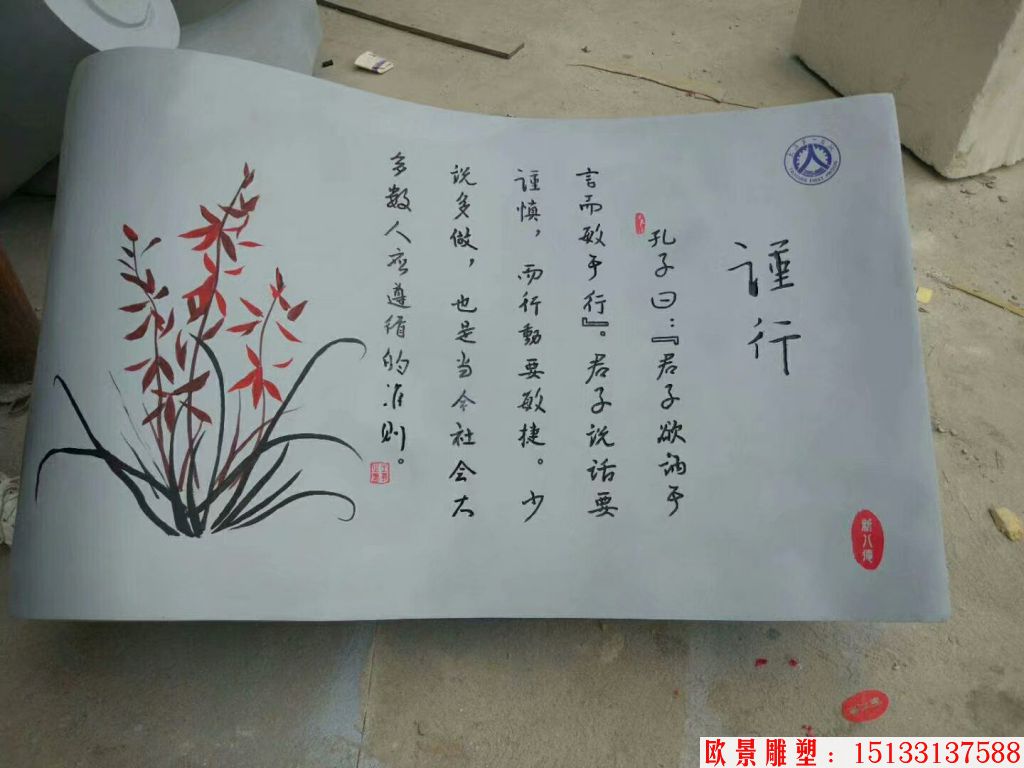 谨行
孔子曰：『君子欲讷于
言而敏于行』。君子说话要
谨慎，而行動要敏捷。少
说多做，也是当今社会大
多数人应遵循的准则。
新八德
欧景雕塑：15133137588